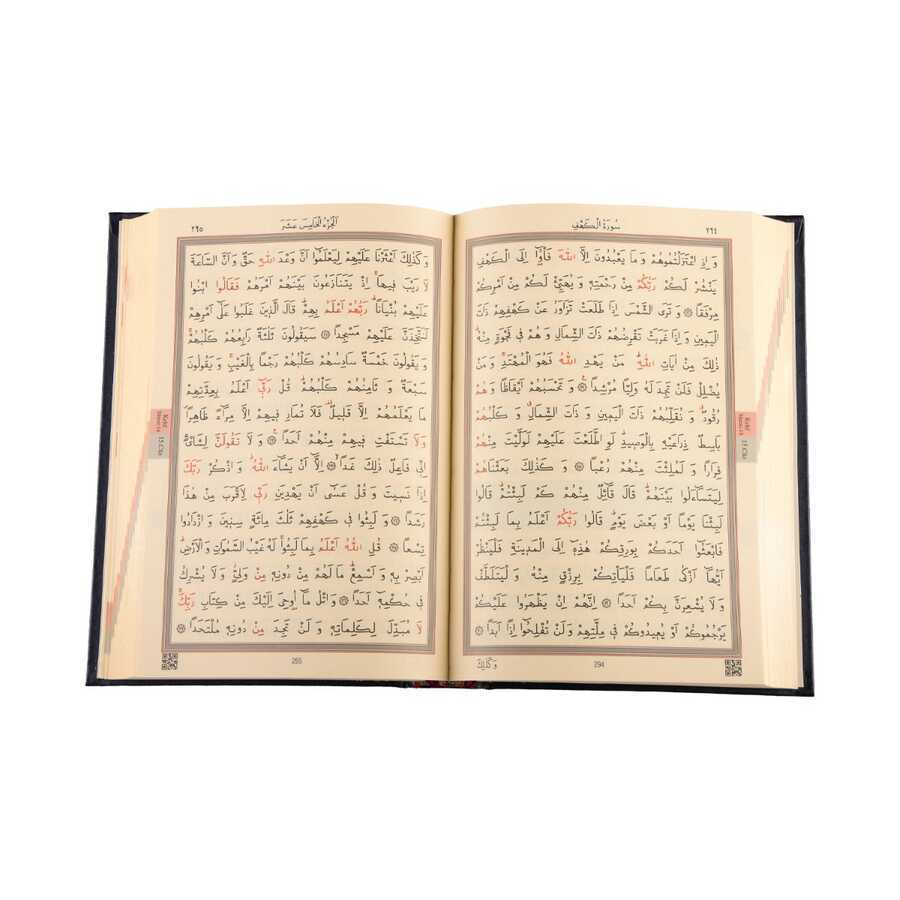 سُورَةُ الْكَهْفِ
وَ اِذِ اعْتَزَلْتُمُوهُمْ وَ مَا يَعْبُدُونَ اِلَّا اللّٰهَ فَأْوُٓا اِلَى الْكَهْفِ
يَنْشُرْ لَكُمْ رَبُّكُمْ مِنْ رَحْمَتِهِ وَ يُهَيِّئْ لَكُمْ مِنْ اَمْرِكُمْ
مِرْفَقًا وَ تَرَى الشَّمْسَ اِذَا طَلَعَتْ تَزَاوَرُ عَنْ كَهْفِهِمْ ذَاتَ
الْيَمِينِ وَ اِذَا غَرَبَتْ تَقْرِضُهُمْ ذَاتَ الشِّمَالِ وَ هُمْ فِى فَجْوَةٍ مِنْهُ
ذٰلِكَ مِنْ اٰيَاتِ اللّٰهِ مَنْ يَهْدِ اللّٰهُ فَهُوَ الْمُهْتَدِ وَ مَنْ
يُضْلِلْ فَلَنْ تَجِدَ لَهُ وَلِيًّا مُرْشِدًا وَ تَحْسَبُهُمْ اَيْقَاظًا وَ هُمْ
رُقُودٌ وَ نُقَلِّبُهُمْ ذَاتَ الْيَمِينِ وَ ذَاتَ الشِّمَالِ وَ كَلْبُهُمْ
بَاسِطٌ ذِرَاعَيْهِ بِالْوَصِيدِ لَوِ اطَّلَعْتَ عَلَيْهِمْ لَوَلَّيْتَ مِنْهُمْ
فِرَارًا وَ لَمُلِئْتَ مِنْهُمْ رُعْبًا وَ كَذٰلِكَ بَعَثْنَاهُمْ
لِيَتَسَٓاءَلُوا بَيْنَهُمْ قَالَ قَٓائِلٌ مِنْهُمْ كَمْ لَبِثْتُمْ قَالُوا
لَبِثْنَا يَوْمًا اَوْ بَعْضَ يَوْمٍ قَالُوا رَبُّكُمْ اَعْلَمُ بِمَا لَبِثْتُمْ
فَابْعَثُٓوا اَحَدَكُمْ بِوَرِقِكُمْ هٰذِهِ اِلَى الْمَدِينَةِ فَلْيَنْظُرْ
اَيُّهَٓا اَزْكٰى طَعَامًا فَلْيَأْتِكُمْ بِرِزْقٍ مِنْهُ وَ لْيَتَلَطَّفْ
وَ لَا يُشْعِرَنَّ بِكُمْ اَحَدًا اِنَّهُمْ اِنْ يَظْهَرُوا عَلَيْكُمْ
يَرْجُمُوكُمْ اَوْ يُعِيدُوكُمْ فِى مِلَّتِهِمْ وَ لَنْ تُفْلِحُٓوا اِذًا اَبَدًا
وَ كَذٰلِكَ
294
15.Cüz
٢٦٥
اَلْجُزْءُ الْخَامِسَ عَشَرَ
وَ كَذٰلِكَ اَعْثَرْنَا عَلَيْهِمْ لِيَعْلَمُٓوا اَنَّ وَعْدَ اللّٰهِ حَقٌّ وَ اَنَّ السَّاعَةَ
لَا رَيْبَ فِيهَا اِذْ يَتَنَازَعُونَ بَيْنَهُمْ اَمْرَهُمْ فَقَالُوا ابْنُوا
عَلَيْهِمْ بُنْيَانًا رَبُّهُمْ اَعْلَمُ بِهِمْ قَالَ الَّذِينَ غَلَبُوا عَلٰٓى اَمْرِهِمْ
لَنَتَّخِذَنَّ عَلَيْهِمْ مَسْجِدًا سَيَقُولُونَ ثَلٰثَةٌ رَابِعُهُمْ كَلْبُهُمْ
وَ يَقُولُونَ خَمْسَةٌ سَادِسُهُمْ كَلْبُهُمْ رَجْمًا بِالْغَيْبِ وَ يَقُولُونَ
سَبْعَةٌ وَ ثَامِنُهُمْ كَلْبُهُمْ قُلْ رَبِّٓى اَعْلَمُ بِعِدَّتِهِمْ
مَا يَعْلَمُهُمْ اِلَّا قَلِيلٌ فَلَا تُمَارِ فِيهِمْ اِلَّا مِرَٓاءً ظَاهِرًا
وَ لَا تَسْتَفْتِ فِيهِمْ مِنْهُمْ اَحَدًا وَ لَا تَقُولَنَّ لِشَايْءٍ
اِنِّى فَاعِلٌ ذٰلِكَ غَدًا اِلَّٓا اَنْ يَشَٓاءَ اللّٰهُ وَ اذْكُرْ رَبَّكَ
اِذَا نَسِيتَ وَ قُلْ عَسٰٓى اَنْ يَهْدِيَنِ رَبِّى لِاَقْرَبَ مِنْ هٰذَا
رَشَدًا وَ لَبِثُوا فِى كَهْفِهِمْ ثَلٰثَ مِائَةٍ سِنِينَ وَ ازْدَادُوا
تِسْعًا قُلِ اللّٰهُ اَعْلَمُ بِمَا لَبِثُوا لَهُ غَيْبُ السَّمٰوَاتِ وَ الْاَرْضِ
اَبْصِرْ بِهِ وَ اَسْمِعْ مَا لَهُمْ مِنْ دُونِهِ مِنْ وَلِىٍّ وَ لَا يُشْرِكُ
فِى حُكْمِهِ اَحَدًا وَ اتْلُ مَٓا اُوحِىَ اِلَيْكَ مِنْ كِتَابِ رَبِّكَ
لَا مُبَدِّلَ لِكَلِمَاتِهِ وَ لَنْ تَجِدَ مِنْ دُونِهِ مُلْتَحَدًا
15.Cüz